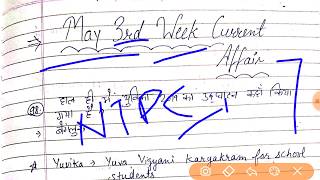 ⇒ May 3rd Week Current
Affair
Q1. हाल ही में युविका का उद्घाटन कहाँ किया
गया है
→ बेंगलुरु
NTPC
⇒ Yuvika → Yuva Vigyani Karyakram for school
students